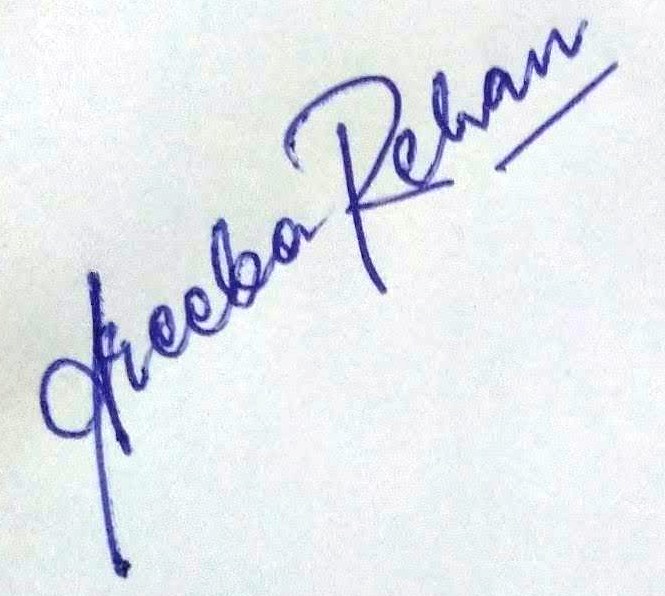 Areeba Rehan